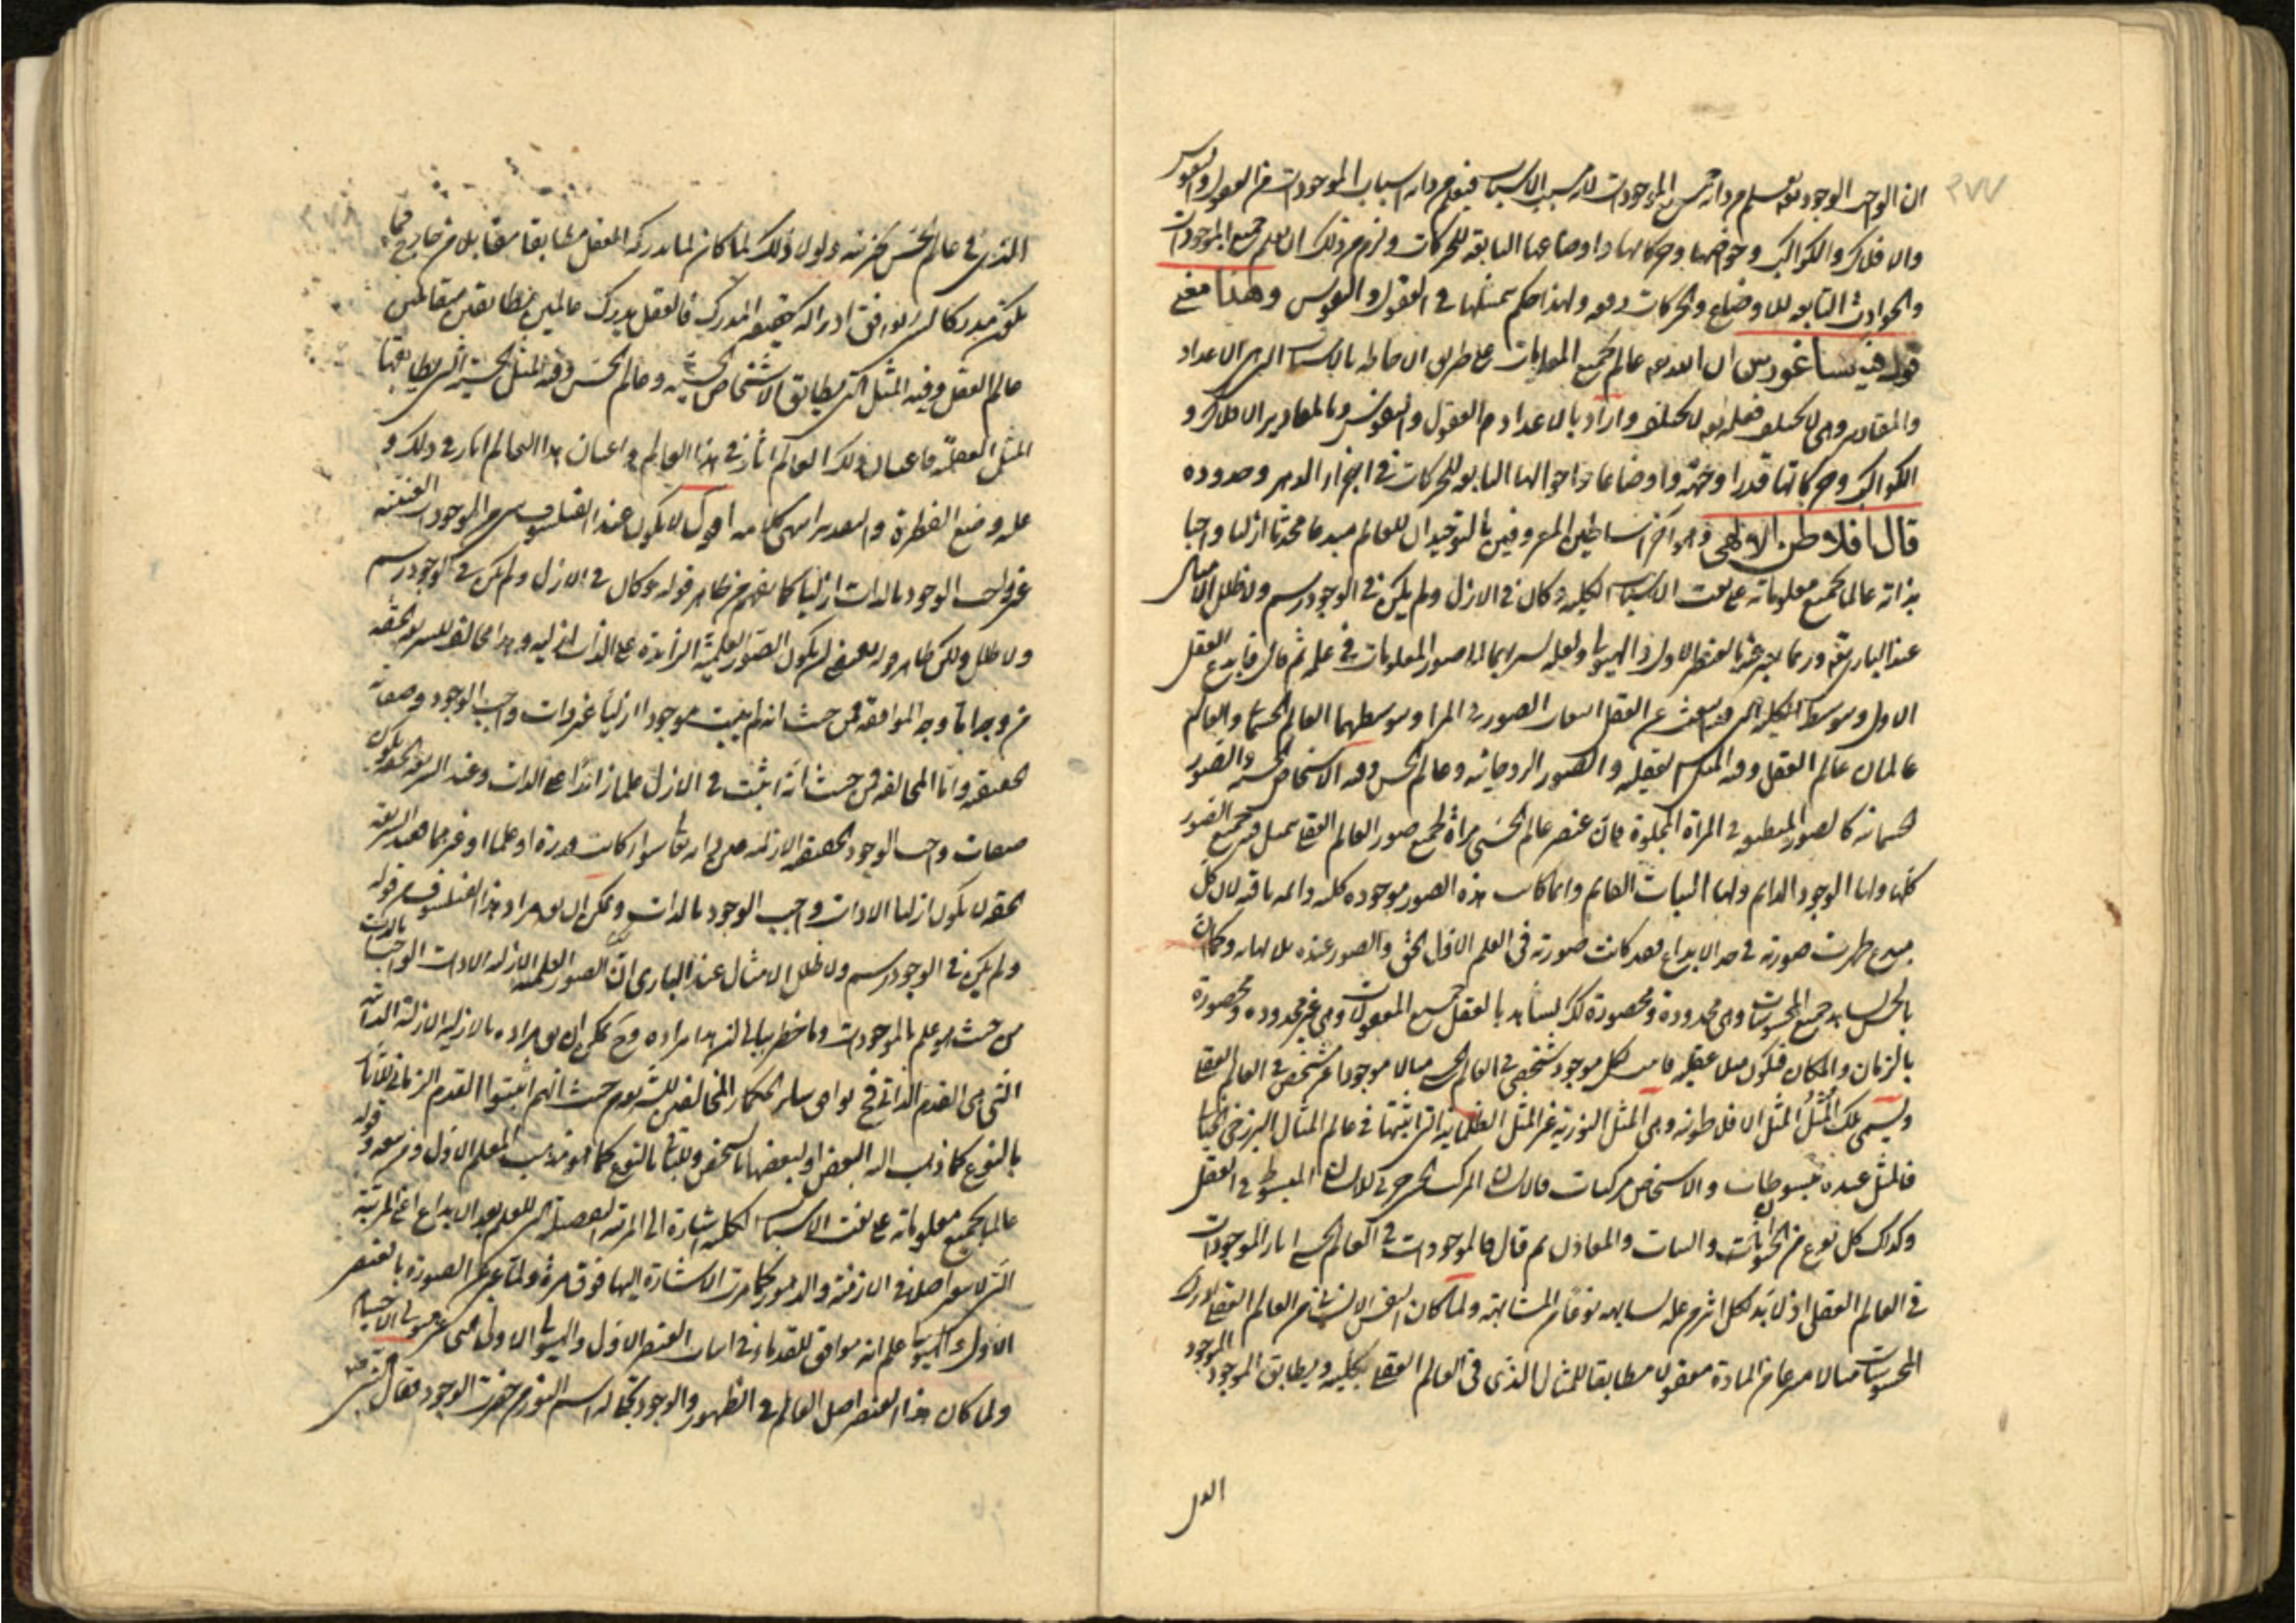 ٢٧٧
ان الواجب الوجود تعالى يعلم من ذاته جميع الموجودات لانه سبب الاسباب فيعلم من ذاته اسباب الموجودات من العقول والنفوس
والافلاك والكواكب وخواصها وحركاتها واوضاعها التابعة للحركات ويلزم من ذلك ان يعلم جميع الموجودات
والحوادث التابعة للاوضاع والحركات دفعة ولهذا حكم بتمثلها في العقول والنفوس وهذا معنى
قول فيثاغورس ان الله تعالى عالم بجميع المعلومات على طريق الاحاطة بالاسباب التى هى الاعداد
والمقادير وهى لا تختلف فعلمه تعالى لا يختلف واراد بالاعداد العقول والنفوس وبالمقادير الافلاك و
الكواكب وحركاتها قدرا وجهة واوضاعها واحوالها التابعة للحركات في اجزاء الدهر وحدوده
قال افلاطن الالهى وهو آخر اساطين المعروفين بالتوحيد ان للعالم مبدعا محدثا ازليا واجبا
بذاته عالما بجميع معلوماته على نعت الاسباب الكلية وكان في الازل ولم يكن في الوجود رسم ولا طلل الا مثال
عند البارى تعالى وربما يعبر عنه بالعنصر الاول والهيولى ولعله يشير بهما الى صور المعلومات في علمه ثم قال فابدع العقل
الاول وبتوسطه النفس الكلية التى قد انبعثت عن العقل انبعاث الصور في المرآة وبتوسطهما العالم الحسى والعالم
عالمان عالم العقل وفيه المثل العقلية والصور الروحانية وعالم الحس وفيه الاشخاص الحسية والصور
الجسمانية كالصور المنطبعة في المرآة المجلوة فان عنصر عالم الحسى مرآة لجميع صور العالم العقلى يتمثل فيه جميع الصور
كلها ولها الوجود الدائم ولها الثبات القائم وانما كانت هذه الصور موجودة كلية دائمة باقية لان كل
مبدع ظهرت صورته في حد الابداع فقد كانت صورته فى العلم الاول الحق والصور عنده بلا نهاية وكما ان
بالحس يشاهد جميع المحسوسات وهى محدودة ومحصورة كذلك يشاهد بالعقل جميع المعقولات وهى غير محدودة ومحصورة
بالزمان والمكان فيكون مثلا عقلية فاثبت لكل موجود شخصى في العالم الحسى مثالا موجودا غير مشخص في العالم العقلى
ويسمى تلك المثل المثل الافلاطونية وهى المثل النورية غير المثل الظلمانية التى اثبتها في عالم المثال البرزخى
فالمثل عنده مبسوطات والاشخاص مركبات فالانسان المركب الحسى جزئى الانسان المبسوط في العقل
وكذلك كل نوع من الحيوانات والنبات والمعادن ثم قال فالموجودات في العالم الحسى آثار الموجودات
في العالم العقلى اذ لا بد لكل اثر من مؤثر يشابهه نوعا من المشابهة ولما كان النفس الانسانى من العالم العقلى ادرك
المحسوسات مثالا منتزعا من المادة معقولا مطابقا للمثال الذى فى العالم العقلى بكليته ويطابق الموجود الموجود
٢٧٨
الذى في عالم الحس بجزئيته ولولا ذلك لما كان لما يدركه العقل مطابقا مقابلا من خارج فما
يكون مدركا لشئ يوافق ادراكه حقيقة المدرك فالعقل يدرك عالمين متطابقين متقابلين
عالم العقل وفيه المثل التى يطابق الاشخاص الحسية وعالم الحس وفيه المثل الحسية التى يطابقها
المثل العقلية فاعيان ذلك العالم آثار في هذا العالم واعيان هذا العالم آثار في ذلك و
عليه وضع الفطرة والتقدير انتهى كلامه اقول لا يكون عند الفيلسوف شئ من الموجودات العينية
غير واجب الوجود بالذات ازليا كما يفهم من ظاهر قوله وكان في الازل ولم يكن في الوجود رسم
ولا طلل ولكن ظاهر قوله يقتضى ان يكون الصور العلمية الزائدة على الذات ازلية وهذا مخالف للشريعة الحقة
من وجه اما وجه الموافقة فمن حيث انه لم يثبت موجودا ازليا غير ذات واجب الوجود وصفاته
الحقيقية واما المخالفة فمن حيث انه اثبت فى الازل علما زائدا على الذات وعند الشريعة الحقة يكون
صفات واجب الوجود الحقيقية الازلية عين ذاته تعالى سواء كانت قدرة او علما او غيرهما فعند الشريعة
الحقة لا يكون ازليا الا ذات واجب الوجود بالذات ويمكن ان يكون مراد هذا الفيلسوف من قوله
ولم يكن في الوجود رسم ولا طلل الا مثال عند البارى ان الصور العلمية الازلية الا ذات الواجب بالذات
من حيث هو علم بالموجودات وما خطر ببالى ان هذا مراده وح يمكن ان يكون مراده بالازلية الازلية الذاتية
التى هى القدم الذاتى فح يوافق سائر الحكماء المخالفين للشريعة من حيث انهم اثبتوا القدم الزمانى
بالنوع كما ذهب اليه البعض او لبعضها بالشخص ولبعضها بالنوع كما هو مذهب المعلم الاول ومن تبعه وقوله
عالما بجميع معلوماته على نعت الاسباب الكلية اشارة الى المرتبة التفصيلية للعلم بعد الابداع اعنى المرتبة
التى لا تغير اصلا في الازمنة والدهور كما مرت الاشارة اليها فوق مرة ولما عبر عن الصورة بالعنصر
الاول والهيولى علم انه موافق للقدماء في اثبات العنصر الاول والهيولى الاولى التى هى غير هيولى الاجسام
ولما كان هذا العنصر اصل العالم في الظهور والوجود بحاله اسم النور من حيث الوجود فقال